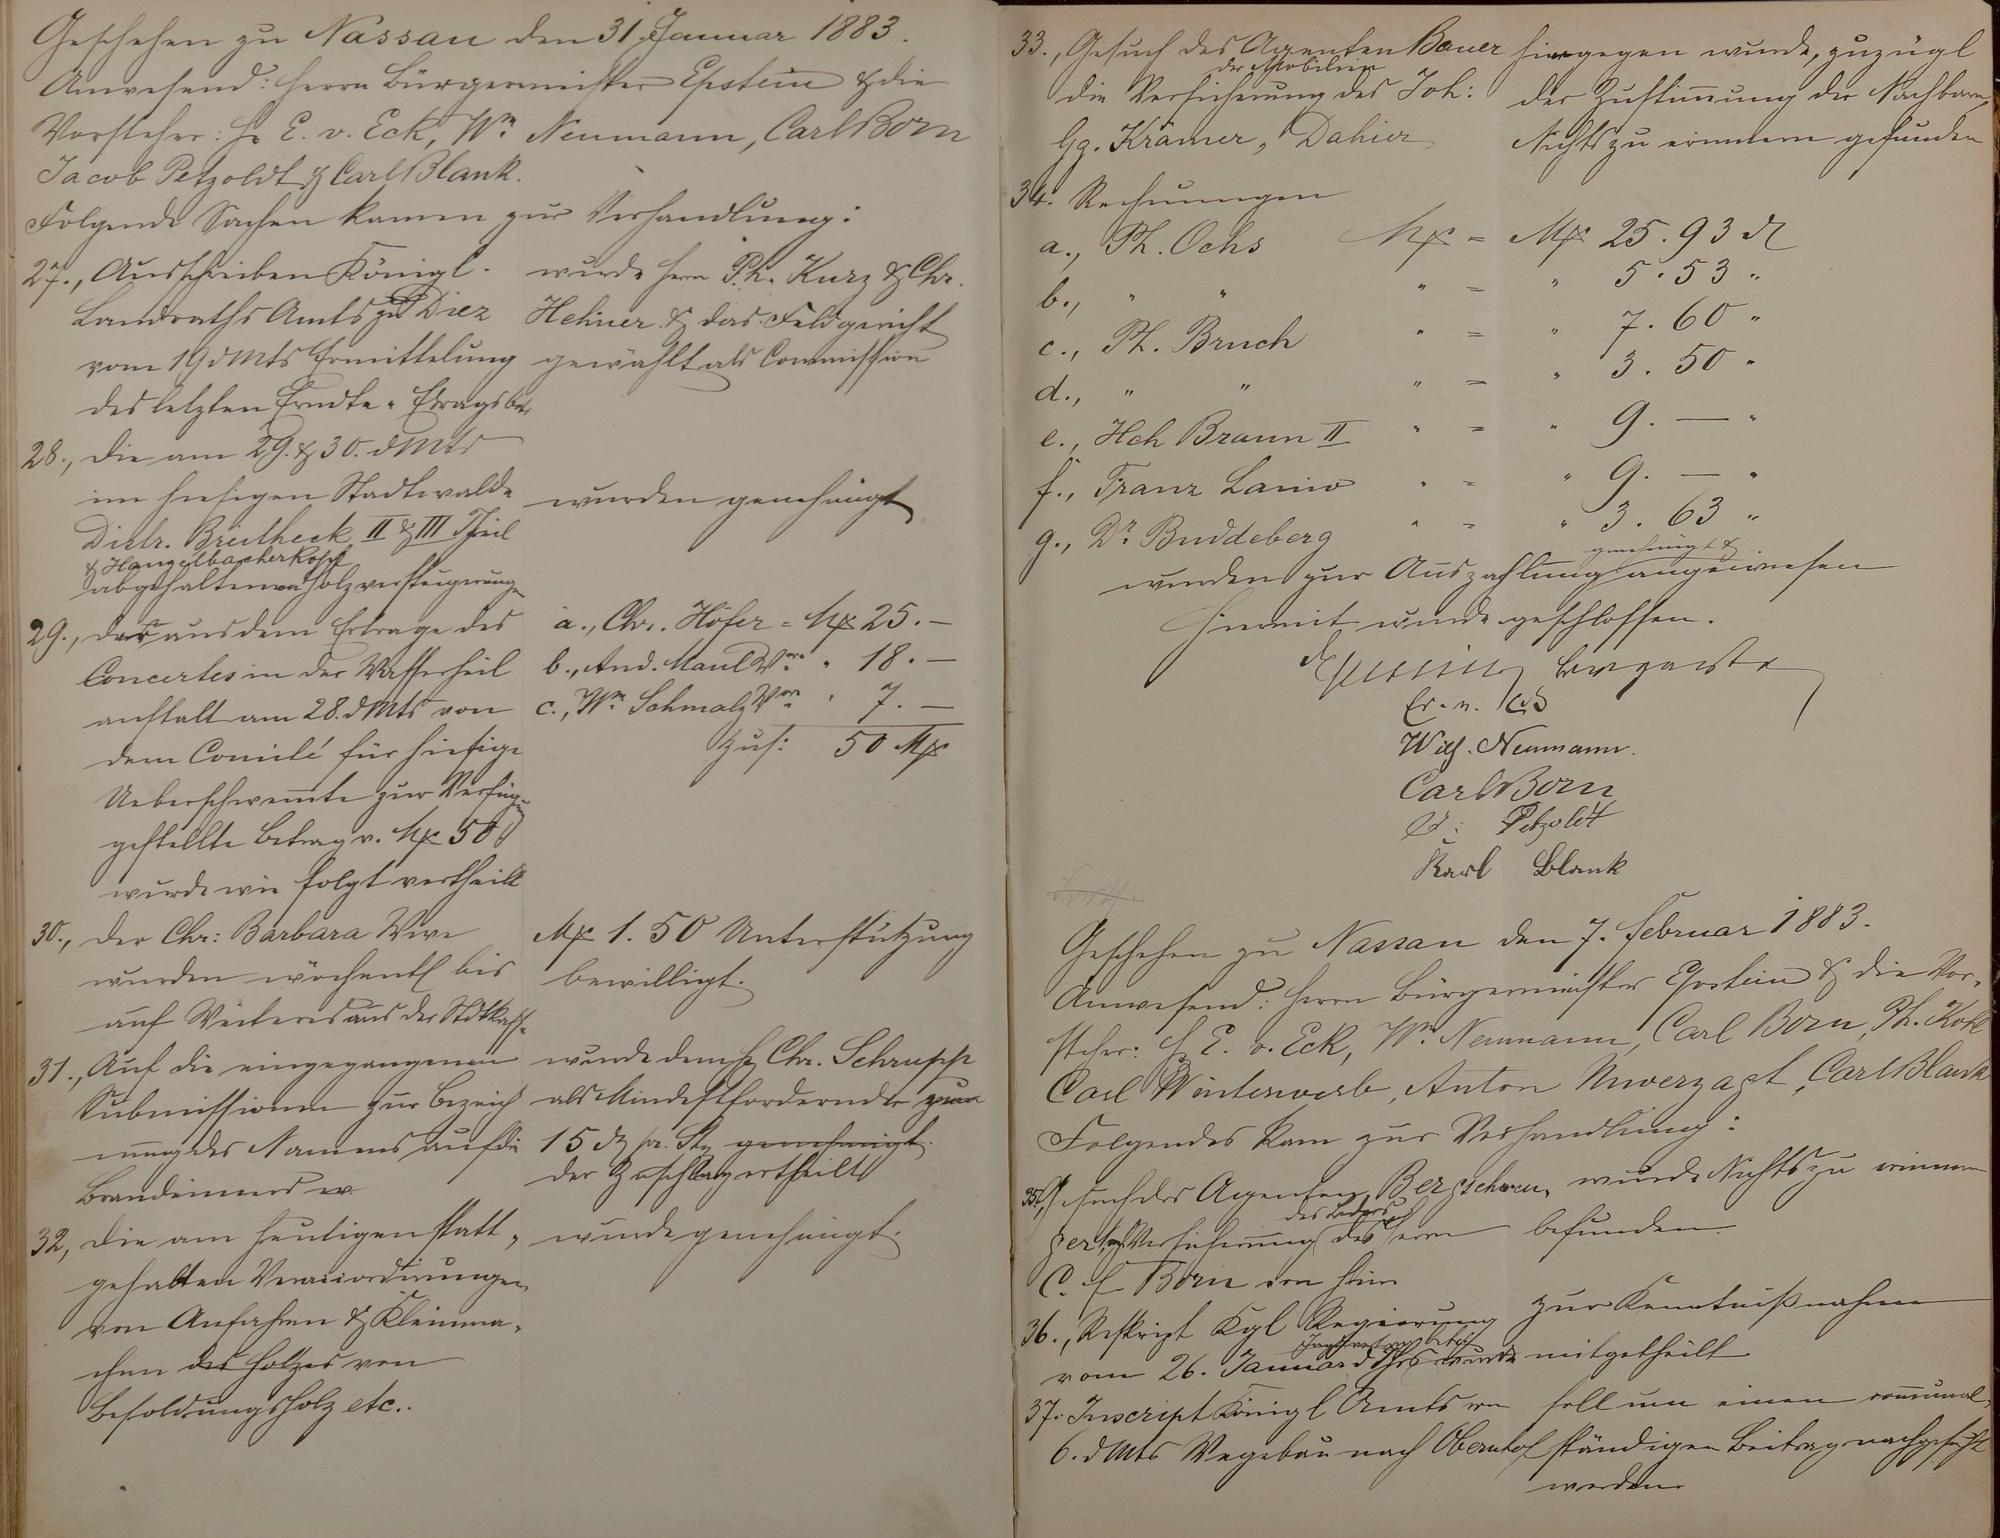 Geschehen zu Nassau den 31. Januar 1883.
Anwesend: Herrn Bürgermeister Epstein & die
Vorsteher: H. E. v. Eck, Wm Neumann, Carl Born
Jacob Petzoldt & Carl Blank.
Folgende Sachen kamen zur Verhandlung:
27., Ausschreiben Königl.
Landraths Amts zu Diez
vom 19 d Mts Ermittelung
des letzten Erndte-Etragsbe.
wurde Herrn Ph. Kurz & Chr.
Hehner & das Feldgericht
gewählt als Commission
28., die am 29. & 30. d Mts
im hiesigen Stadtwalde
Distr. Breitheck II & III Theil
& Hangelbacherkopf
abgehaltenen Holzversteigerung
wurden genehmigt
29., der aus dem Ertrage des
Concertes in der Wasserheil
anstalt am 28. d Mts von
dem Comité für hiesige
Ueberschwemte zur Verfüg-
gestellte Betrag v. Mk 50
wurde wie folgt vertheilt
a., Chr. Höfer = Mk 25.—
b., And. Maul Wwe " 18.—
c., Wm Schmalz Wwe " 7.—
Zus: 50 Mk
30., der Chr: Barbara Wwe
wurden wöchentl bis
auf Weiteres aus der Stdtkass.
Mk 1.50 Unterstützung
bewilligt.
31., Auf die eingegangenen
Submissionen zur Bezeich
nung des Namens auf die
Brandeimer
wurde dem H. Chr. Schrupp
als Mindestfordernder zum
15 d pr. Stg genehmigt.
der Zuschlag ertheilt
32, die am heutigen statt-
gehabten Veraccordirungen
von Anfahren & Kleinma-
chen des Holzes von
Besoldungsholz etc..
wurde genehmigt.
33., Gesuch des Agenten Bauer
der Mobilien
die Versicherung des Joh:
Gg. Krämer, Dahier
hiergegen wurde, zuzügl
der Zustimmung der Nachbarn,
Nichts zu erinnern gefunden
34. Rechnungen
a., Ph. Ochs Mk = Mk 25.93 d
b., " " " = " 5.53 "
c., Ph. Bruch " = " 7.60 "
d., " " " = " 3.50 "
e., Hch Braun II " = " 9.— "
f., Franz Lanio " = " 9.— "
g., Dr Buddeberg " = " 3.63 "
genehmigt &
wurden zur Auszahlung angewiesen
Hiermit wurde geschlossen.
Epstein
Er. v. Eck
Wilh. Neumann.
Carl Born
J: Petzoldt
Karl Blank
Geschehen zu Nassau den 7. Februar 1883.
Anwesend: Herrn Bürgermeister Epstein & die Vor-
steher: H. E. v. Eck, Wm Neumann, Carl Born, Ph. Kohl
Carl Winterwerb, Anton Unverzagt, Carl Blank
Folgendes kam zur Verhandlung:
35., Gesuch des Agenten
des Leders
Versicherung des Herrn
C. F. Born von hier
wurde Nichts zu erinnern
befunden.
36., Reskript Kgl Regierung
vom 26. Januar d Jhrs wurde
zur Kenntnißnahme
mitgetheilt
37. Inscript Königl Amts von
6. d Mts Wegebau nach Obernhof
soll um einen comunal-
ständigen Beitrag nachgesucht
werden